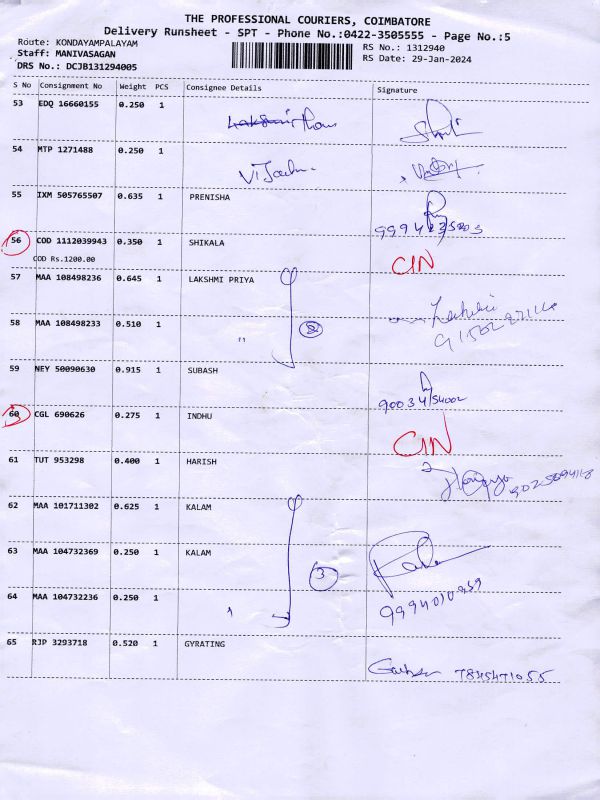 THE PROFESSIONAL COURIERS, COIMBATORE
Delivery Runsheet - SPT - Phone No.:0422-3505555 - Page No.:5
Route: KONDAYAMPALAYAM
RS No.: 1312940
Staff: MANIVASAGAN
RS Date: 29-Jan-2024
DRS No.: DCJB131294005
S No Consignment No Weight PCS Consignee Details Signature
53 EDQ 16660155 0.250 1
54 MTP 1271488 0.250 1
55 IXM 505765507 0.635 1 PRENISHA
56 COD 1112039943 0.350 1 SHIKALA CIN
COD Rs.1200.00
57 MAA 108498236 0.645 1 LAKSHMI PRIYA
58 MAA 108498233 0.510 1 " 2
59 NEY 50090630 0.915 1 SUBASH
9003454002
60 CGL 690626 0.275 1 INDHU CIN
61 TUT 953298 0.400 1 HARISH
62 MAA 101711302 0.625 1 KALAM
63 MAA 104732369 0.250 1 KALAM 3
64 MAA 104732236 0.250 1
9994010959
65 RJP 3293718 0.520 1 GYRATING
7845471055